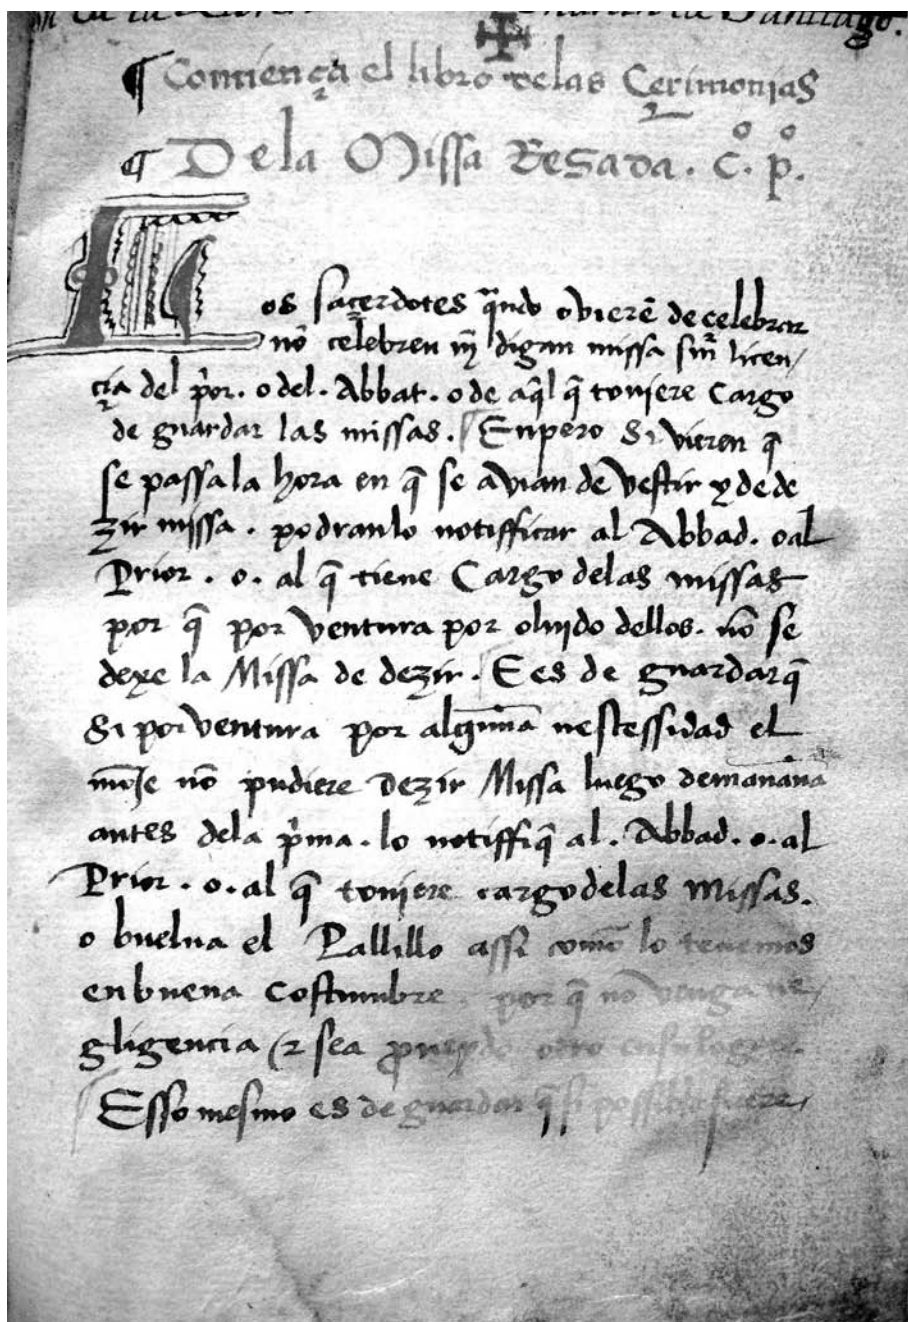 de la
Santiago.
¶ Comiença el libro delas Çerimonias
¶ Dela Missa Resada. c.º p.º
Los saçerdotes q̃ndo ovierẽ de çelebrar
nõ çelebren nj̃ digan missa sin̄ licen/
çia del p̃or. o del. Abbat. o de aq̃l q̃ toviere Cargo
de guardar las missas. Enpero Si vieren q̃
se passa la hora en q̃ se avian de vestir y de de
zir missa. podranlo notifficar al Abbad. o al
Prior. o. al q̃ tiene Cargo delas missas
por q̃ por ventura por olvido dellos. nõ se
dexe la Missa de dezir. E es de guardar q̃
Si por ventura por algũna nescessidad el
mõje nõ pudiere dezir Missa luego de mañana
antes dela p̃ma. lo notiffiq̃ al. Abbad. o. al
Prior. o. al q̃ toviere cargo delas Missas.
o buelva el Pallillo assi comõ lo tenemos
en buena Costumbre. por q̃ nõ venga ne/
gligencia ⁊ sea proveydo otro en su logar.
Esso mesmo es de guardar q̃ si possible fuere,